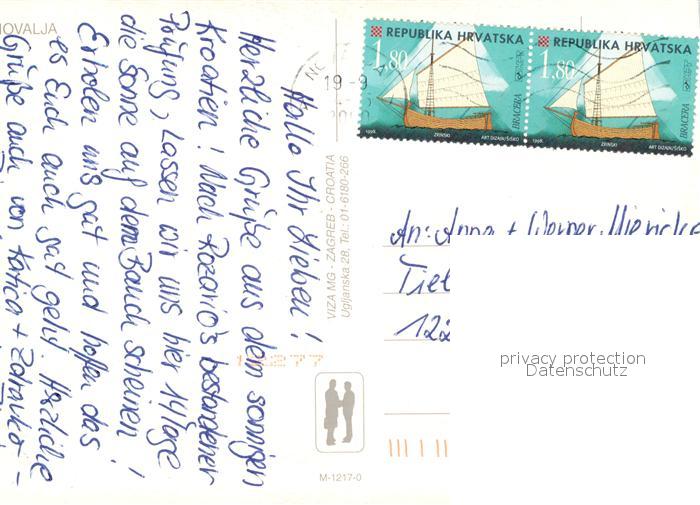 NOVALJA
Hallo Ihr Lieben!
Herzliche Grüße aus dem sonnigen
Kroatien! Nach Rozario's bestandener
Prüfung, lassen wir uns hier 14 Tage
die Sonne auf dem Bauch scheinen!
Erholen uns gut und hoffen das
es Euch auch gut geht. Herzliche
Grüße auch von Katica + Zdravko -
VIZA MG - ZAGREB - CROATIA
Ugljanska 28, Tel.: 01-6180-266
REPUBLIKA HRVATSKA
1.80
BRACERA
1998.
ZRINSKI
ART DIZAJN/ŠIŠKO
REPUBLIKA HRVATSKA
1.80
BRACERA
1998.
ZRINSKI
ART DIZAJN/ŠIŠKO
19 -9
An: Anna + Werner
Tiet
122
privacy protection
Datenschutz
M-1217-0